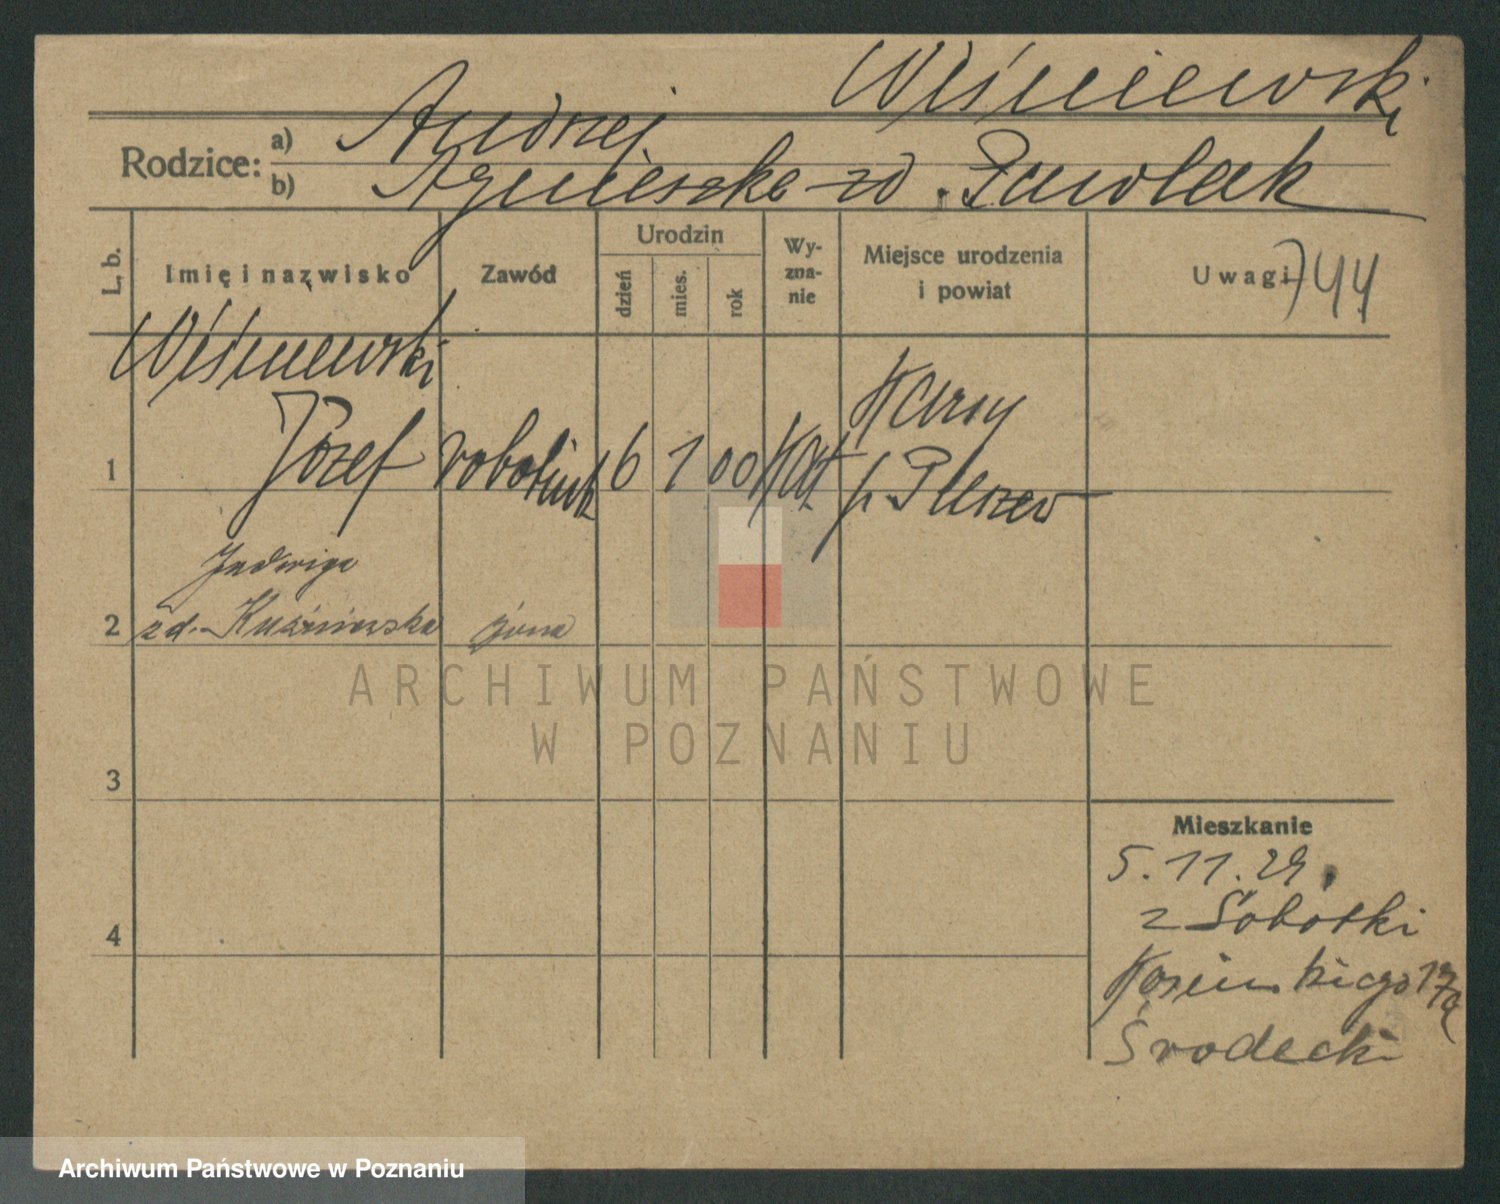 Wiśniewski
Rodzice: a) Andrzej
b) Agnieszka zd. Pawlak
L. b. Imię i nazwisko Zawód Urodzin dzień mies. rok Wy-zna-nie Miejsce urodzenia i powiat Uwagi 744
Wiśniewski
1 Józef robotnik 6 1 00 kat Karsy
p. Pleszew
Jadwiga
2 zd. Kuźniewska żona
ARCHIWUM PAŃSTWOWE
W POZNANIU
3
Mieszkanie
5.11.29.
z Sobotki
4
Kosińskiego 17a
Środecki
Archiwum Państwowe w Poznaniu